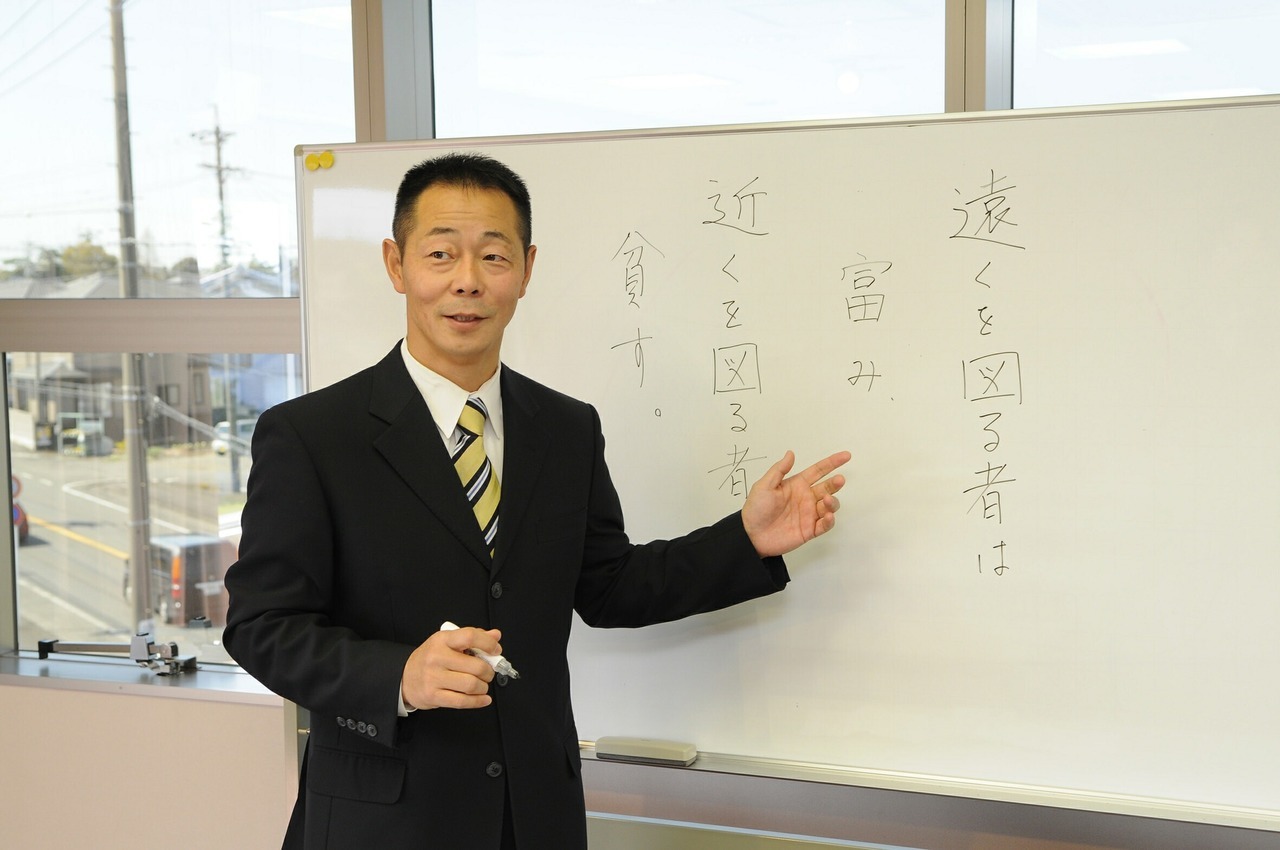 遠くを図る者は
富み、
近くを図る者
貧す。